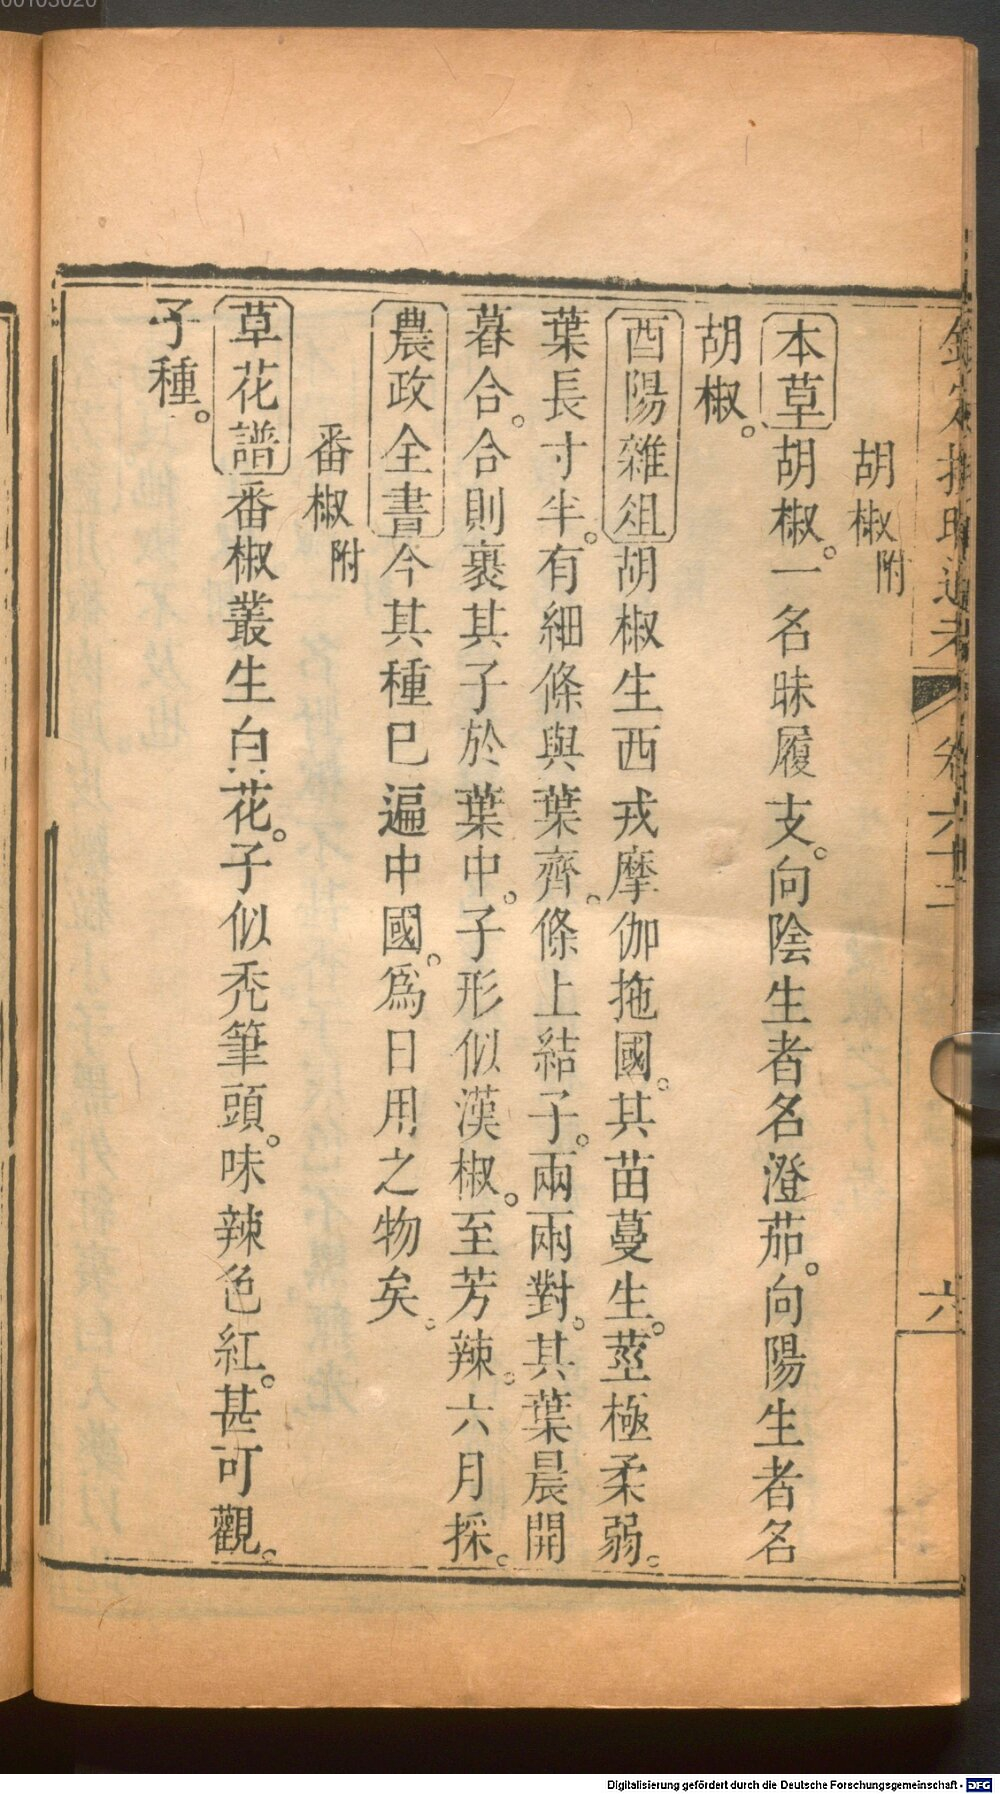 胡椒附
本草胡椒。一名昧履支。向陰生者名澄茄。向陽生者名
胡椒。
酉陽雜俎胡椒生西戎摩伽拖國。其苗蔓生。莖極柔弱。
葉長寸半。有細條與葉齊。條上結子。兩兩對。其葉晨開
暮合。合則裹其子於葉中。子形似漢椒。至芳辣。六月採。
農政全書今其種巳遍中國。爲日用之物矣。
番椒附
草花譜番椒叢生白花。子似禿筆頭。味辣色紅。甚可觀。
子種。
卷六十
六
00103020
Digitalisierung gefördert durch die Deutsche Forschungsgemeinschaft - DFG